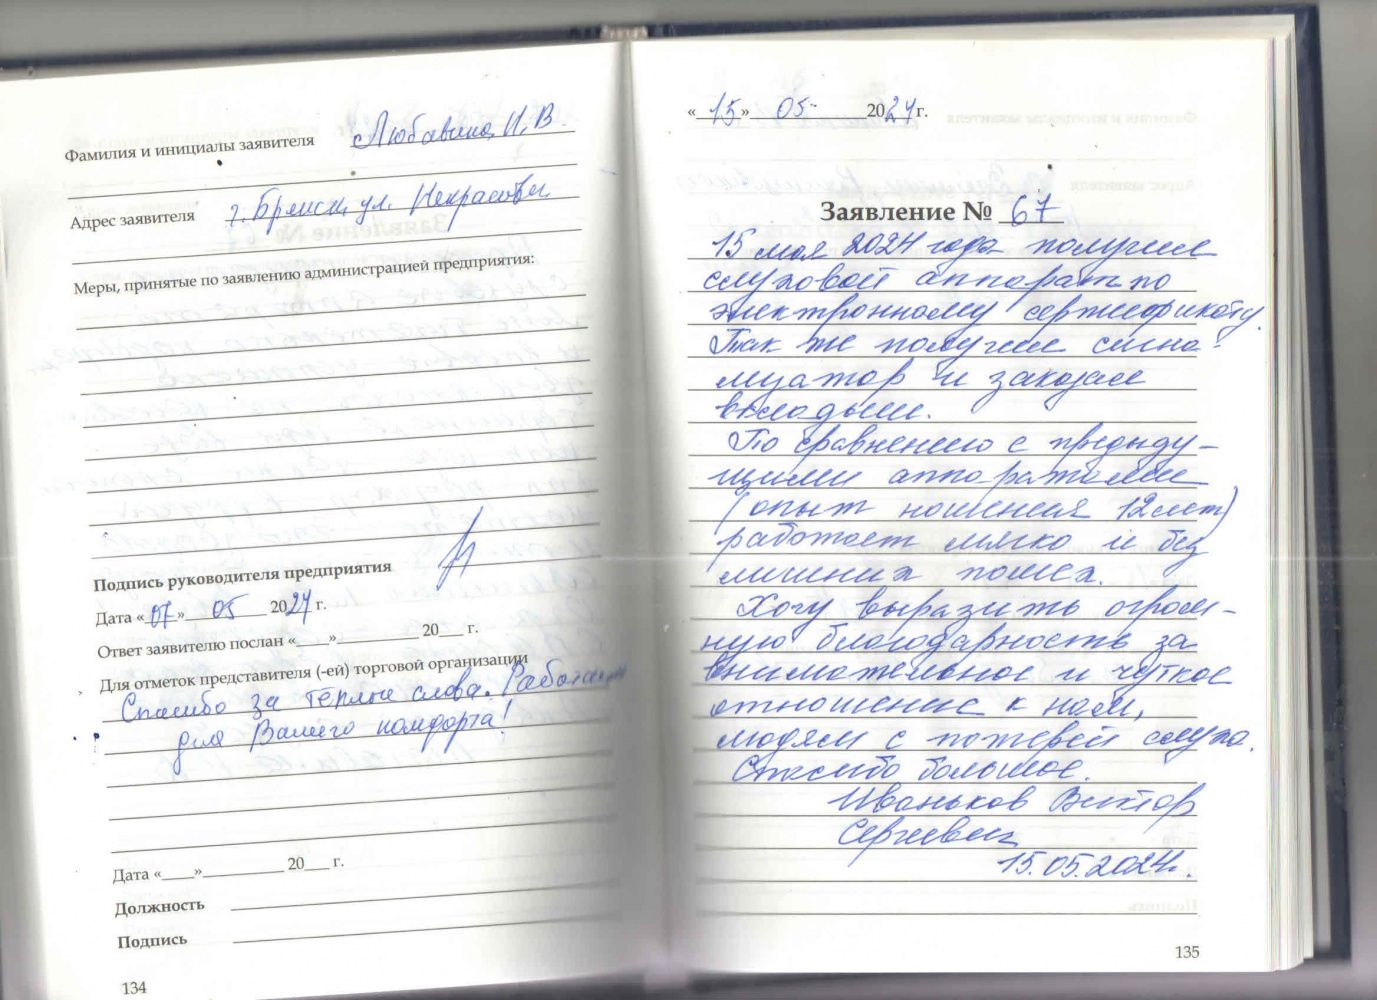 Фамилия и инициалы заявителя Любавина И,В
Адрес заявителя г. Брянск, ул. Некрасова
Меры, принятые по заявлению администрацией предприятия:
Подпись руководителя предприятия
Дата «07» 05 2024 г.
Ответ заявителю послан «___»__________ 20___ г.
Для отметок представителя (-ей) торговой организации
Спасибо за тёплые слова. Работаем
для Вашего комфорта!
Дата «____»__________ 20___ г.
Должность
Подпись
134
«15» 05 2024г.
Заявление № 67
15 мая 2024 года получил
слуховой аппарат по
электронному сертификату.
Так же получил сигна-
лизатор и заказал
вкладыши.
По сравнению с предыду-
щими аппаратами
(опыт ношения 12 лет)
работает мягко и без
лишних помех.
Хочу выразить огром-
ную благодарность за
внимательное и чуткое
отношение к нам,
людям с потерей слуха.
Спасибо большое.
Иваньков Виктор
Сергеевич
15.05.2024г.
135